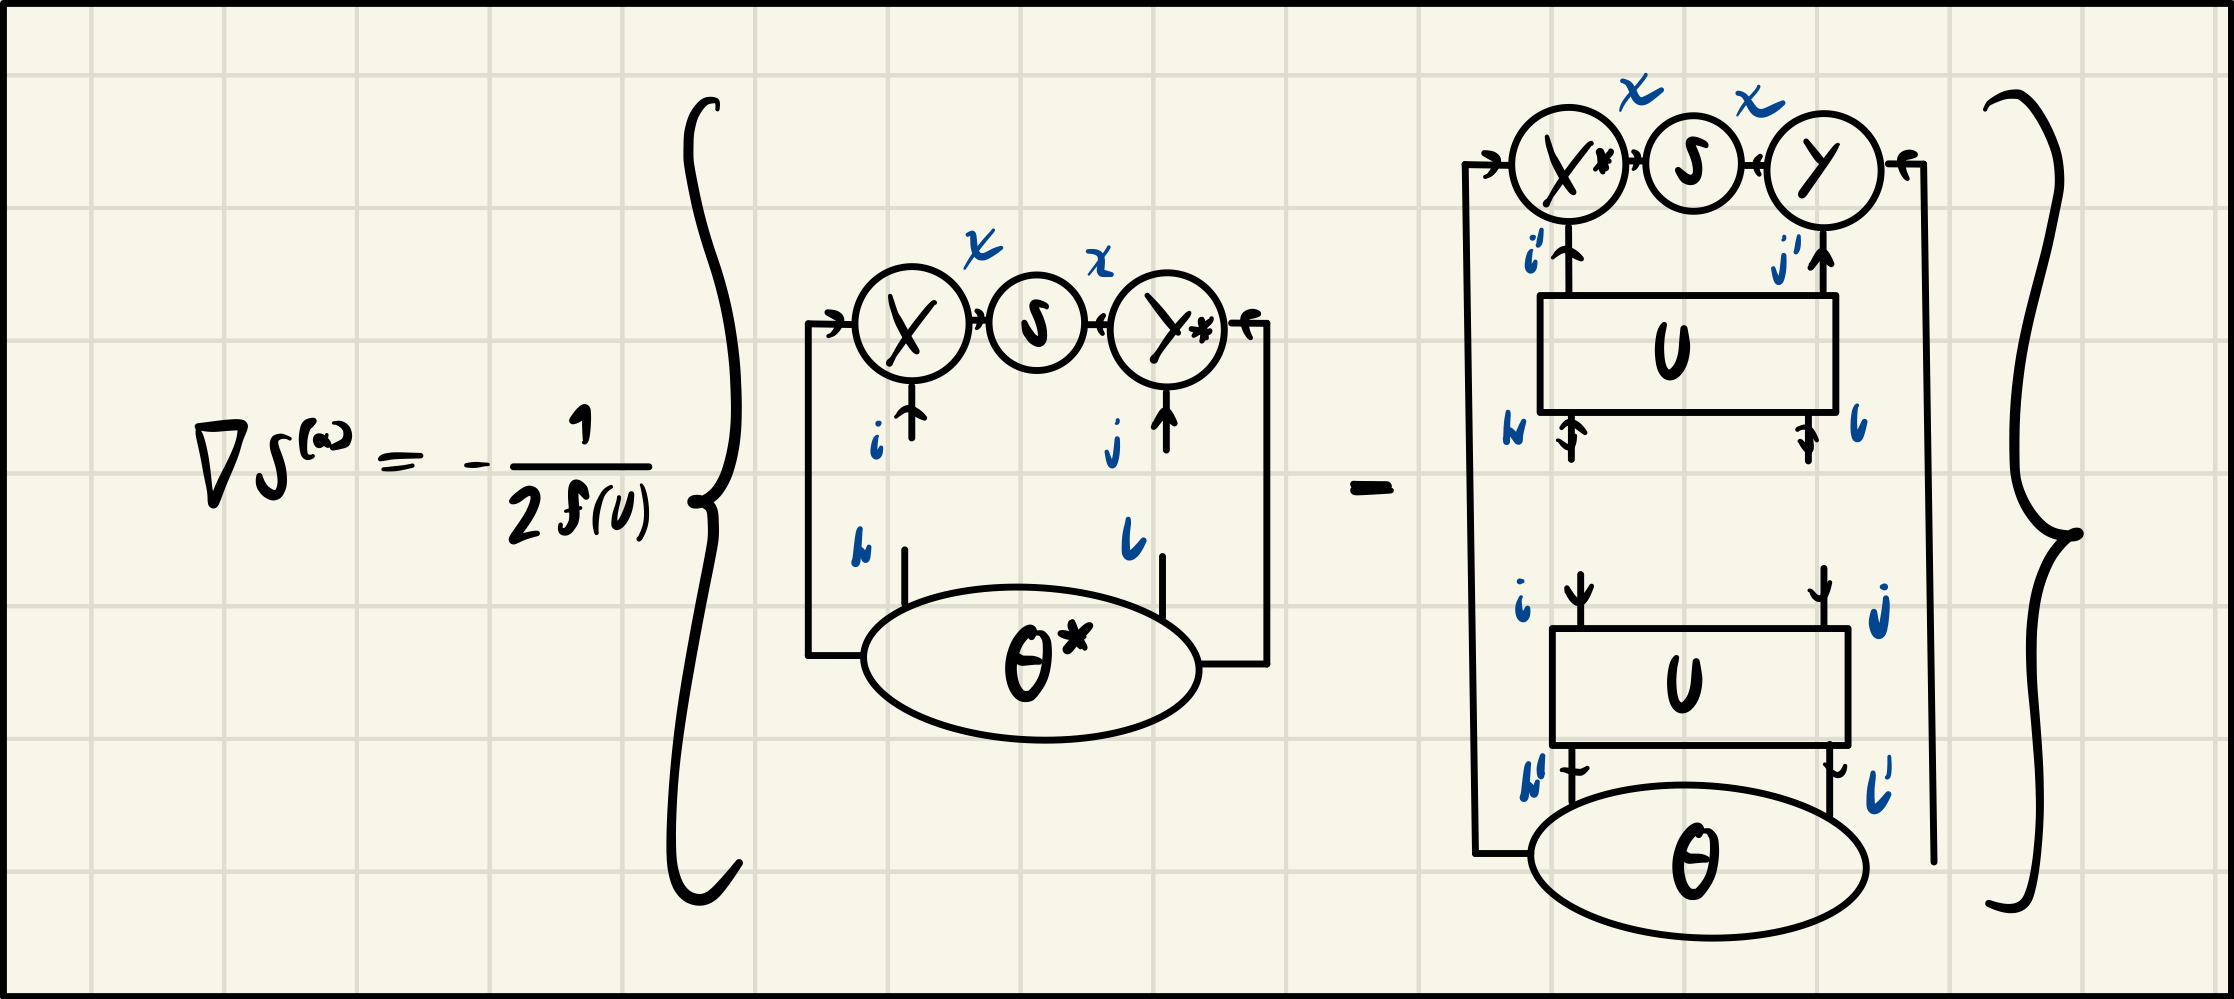 ∇S^(α) = - 1 / 2 f(U) { - }
x x
X S Y*
i j
k l
θ*
x x
X* S Y
i' j'
U
k l
i j
U
k' l'
θ